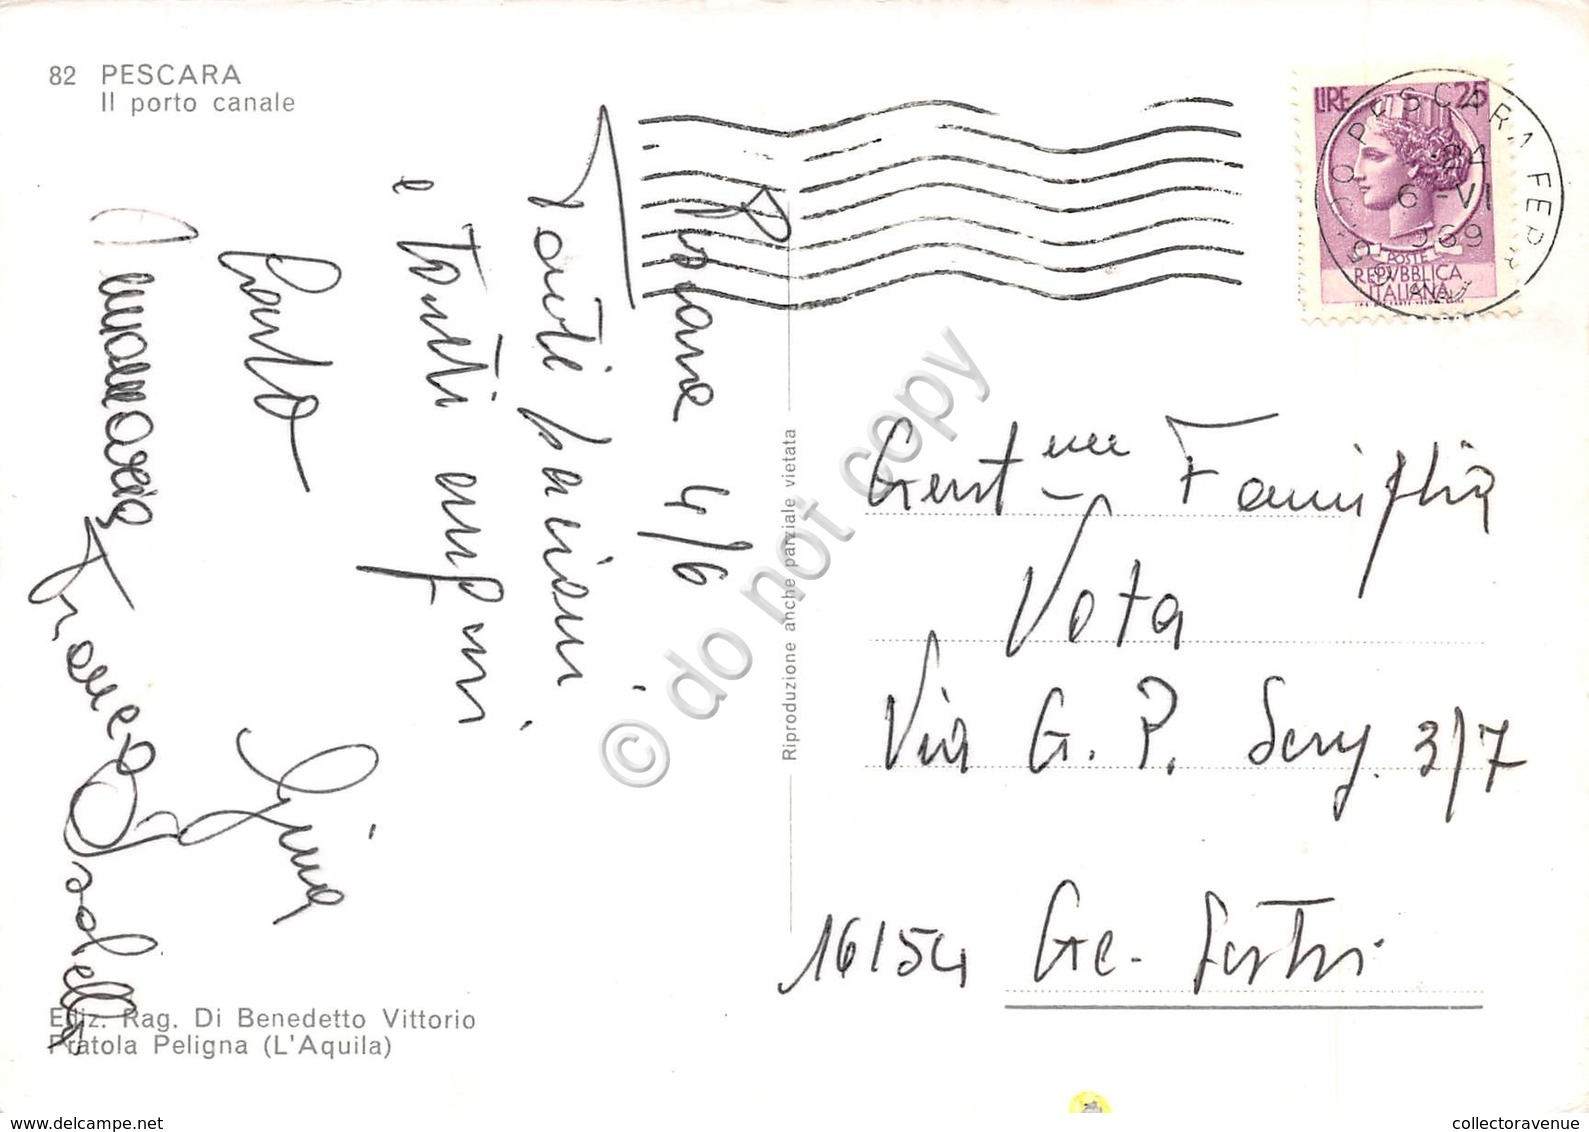 82 PESCARA
Il porto canale
LIRE 25
POSTE
REPVBBLICA
ITALIANA
PESCARA FERR
24
6-VI
969
Pescara 4/6
Tanti bacioni
e tanti auguri
Carlo
Gina
Annamaria
Franco
Isabella
Riproduzione anche parziale vietata
Gent.me Famiglia
Vota
Via G. P. 3/7
16154 Ge. Sestri
Ediz. Rag. Di Benedetto Vittorio
Pratola Peligna (L'Aquila)
© do not copy
www.delcampe.net
collectoravenue